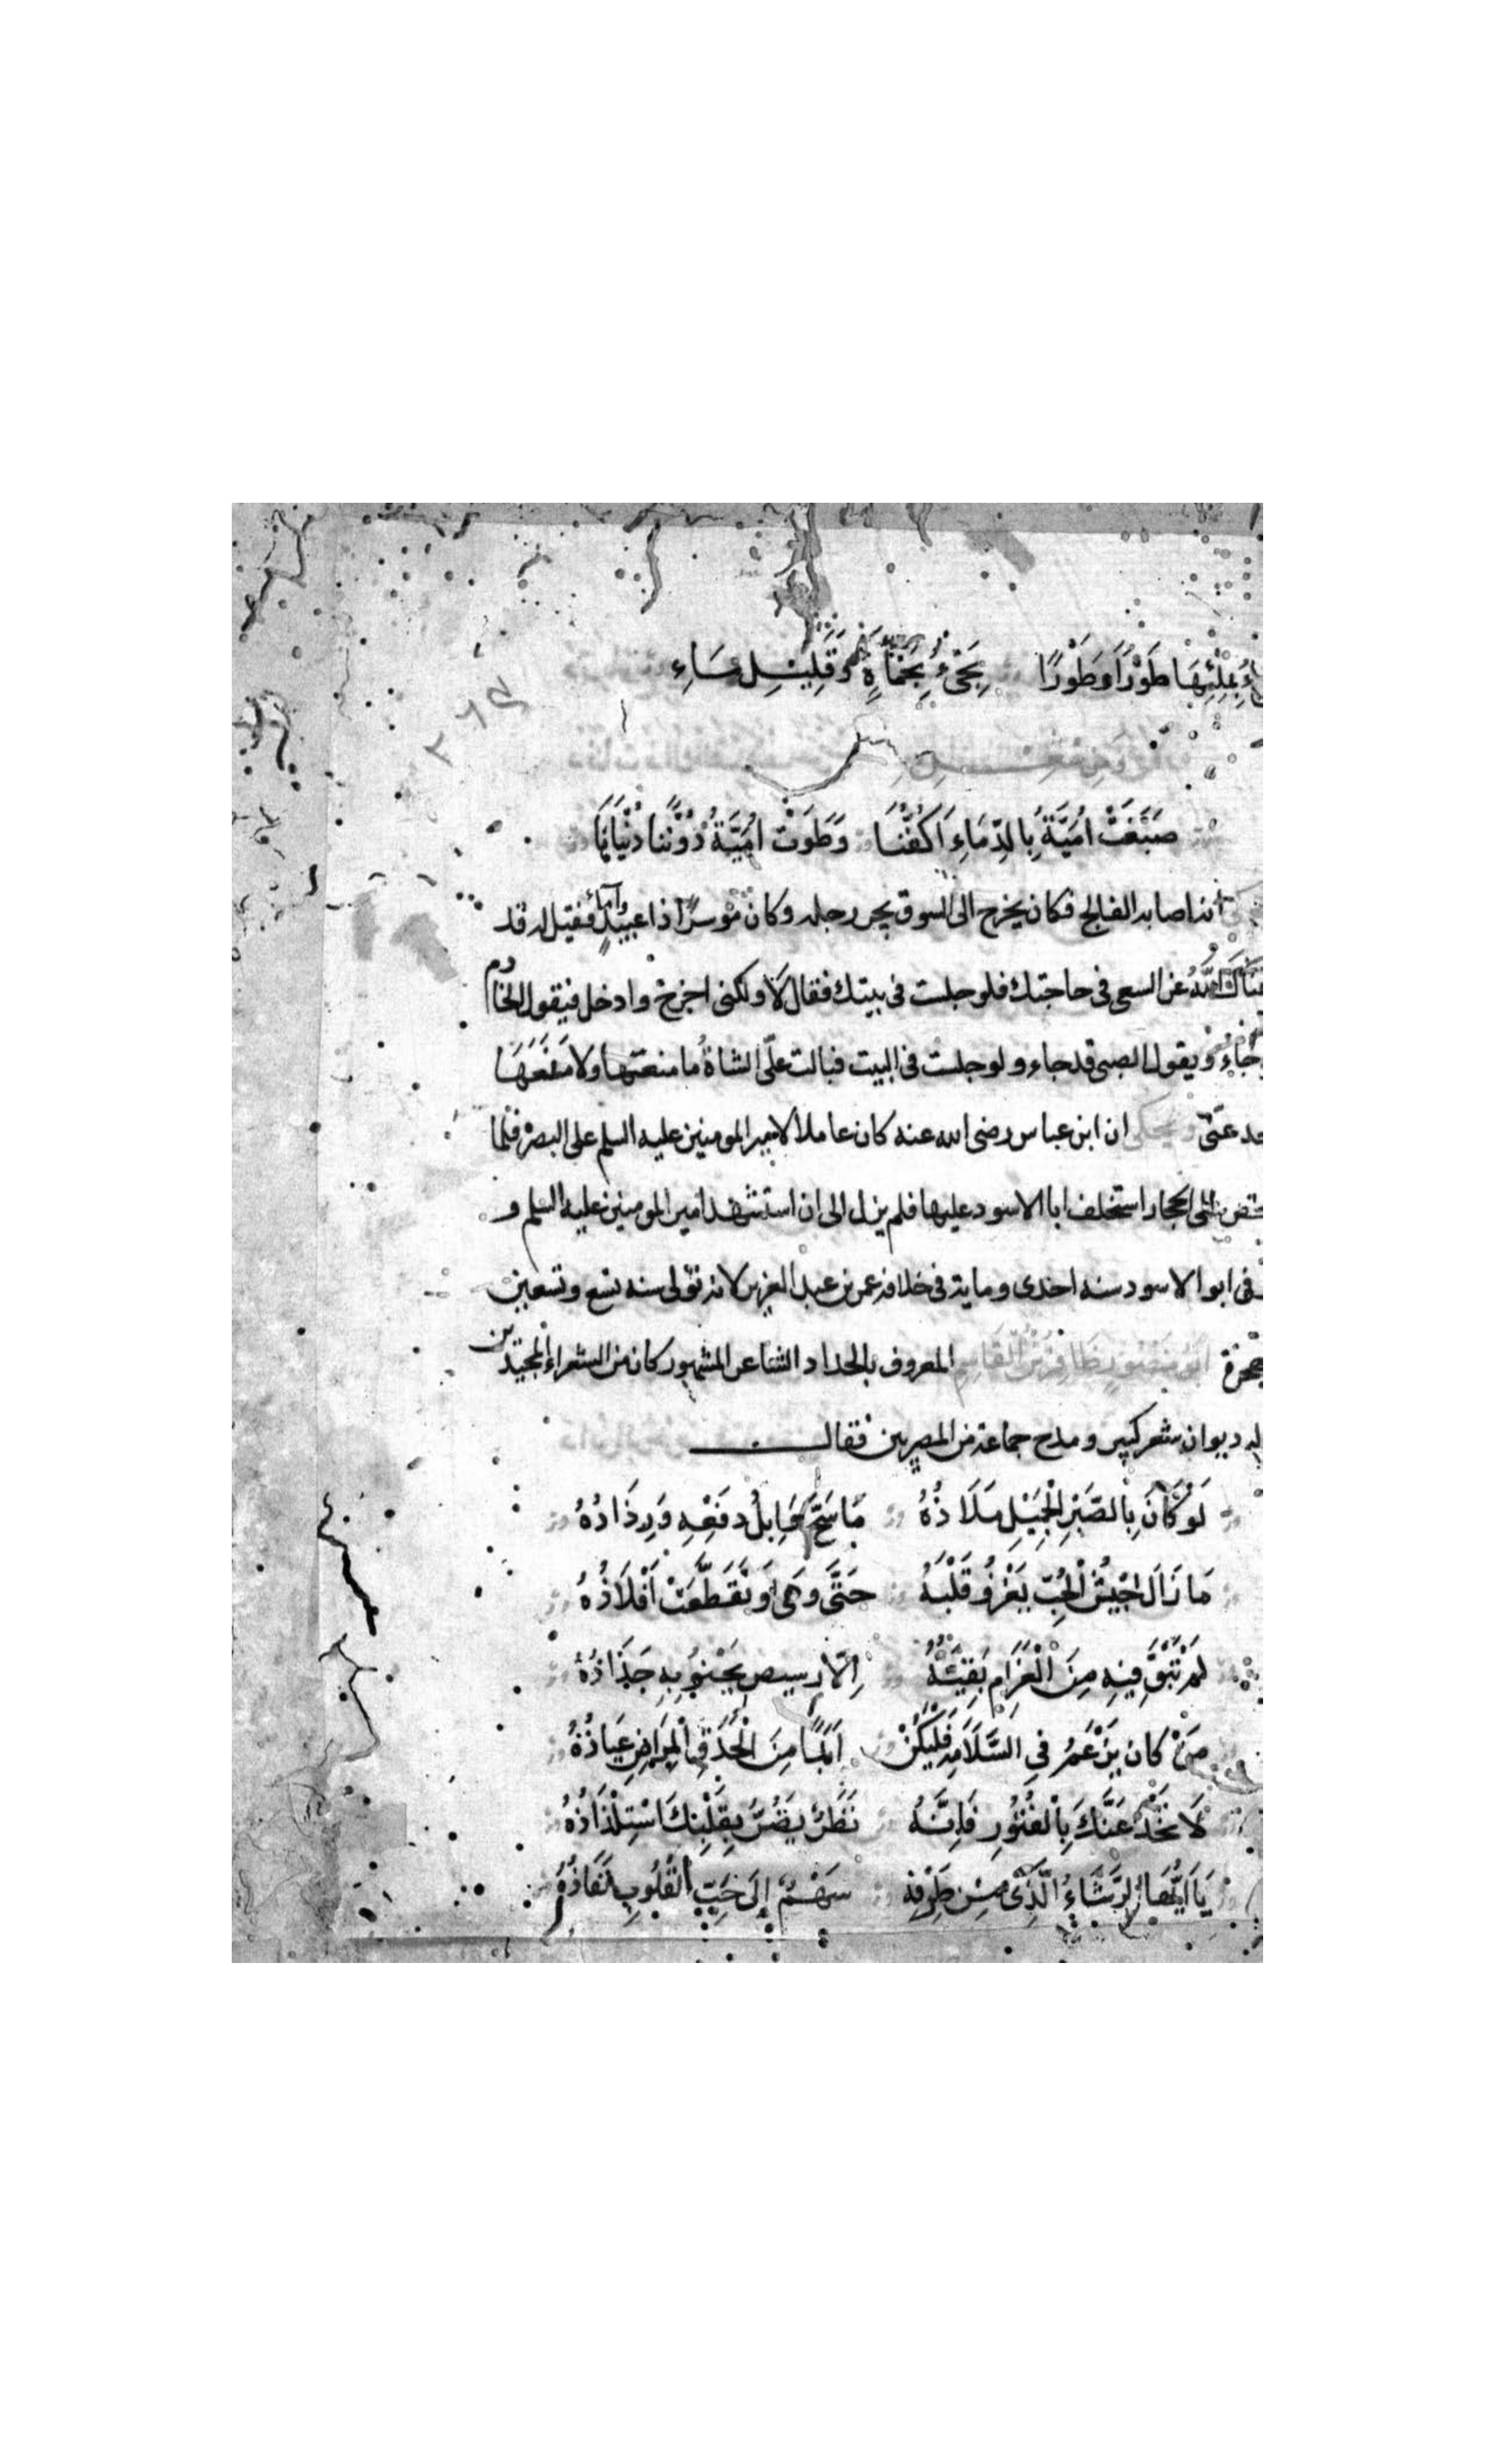 بِمِلْئِهَا طَوْرًا وَطَوْرًا يَجِئُ بِحَمْأَةٍ وَقَلِيْلِ مَاءِ
صَبَغَتْ اُمَيَّةُ بِالدِّمَاءِ اَكُفَّنَا وَطَوَتْ اُمَيَّةُ دُوْنَنَا دُنْيَانَا
انه اصابه الفالج فكان يخرج الى السوق يجر رجله وكان موسرًا ذا عبيدٍ وآماءٍ فقيل له قد
اللّٰهُ عن السعى فى حاجتك فلو جلست فى بيتك فقال لَا ولكنى اخرج وادخل فيقول الخادم
جاء ويقول الصبى قد جاء ولو جلست فى البيت فبالت علّى الشاةُ ما منعتها ولا
عنّى ويحكى ان ابن عباس رضى الله عنه كان عاملا لامير المومنين عليه السلم على البصره فلما
الى الحجاز استخلف ابا الاسود عليها فلم يزل الى ان استشهد امير المومنين عليه السلم و
ابو الاسود سنه احدى وماية فى خلافة عمر بن عبد العزيز لانه تولى سنه تسع وتسعين
اَبُو مَنْصُور ظَافِر بْنُ الْقَاسِم المعروف بالحداد الشاعر المشهور كان من الشعراء المجيدين
له ديوان شعر كبير ومدح جماعة من المصريين فقال
لَوْ كَانَ بِالصَّبْرِ الْجَمِيْلِ مَلَاذُهُ مَا سَحَّ وَابِلُ دمْعِهِ وَرِذَاذُهُ
مَا زَالَ جَيْشُ الْحُبّ يَغْزُو قَلْبَهُ حَتَّى وَهَى وَتَقَطَّعَتْ اَفْلَاذُهُ
لَمْ تَبْقَ فِيْهِ مِنَ الْغَرَامِ بَقِيَّةٌ اِلّا رسيس يَحْتَوِيْهِ جَذَاذُهُ
مَنْ كان يَرْغَبُ فِى السَّلَامَةِ فَلْيَكُنْ اَبَدًا مِنَ الْحَدَقِ الْمِرَاضِ عَيَاذُهُ
لَا تَخْدَعَنَّكَ بِالْفُتُوْرِ فَاِنَّهُ نَظَرٌ يَضُرُّ بِقَلْبِكَ اسْتِلْذَاذُهُ
يَا اَيُّهَا الرَّشَاءُ الَّذِى مِنْ طَرْفِهِ سَهْمٌ إِلَى حَبِّ الْقُلُوبِ نَفَاذُهُ